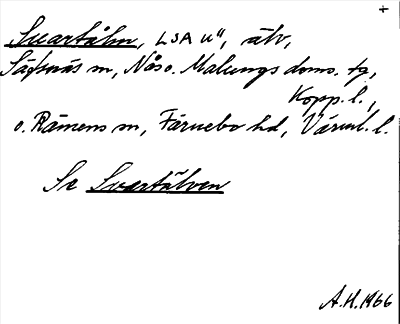 +
Svartålm, LSA u", älv,
Säfsnäs sn, Nås o. Malungs doms. tg,
Kopp. l.,
o. Rämens sn, Färnebo hd, Värml. l.
Se Svartälven
A.H. 1966